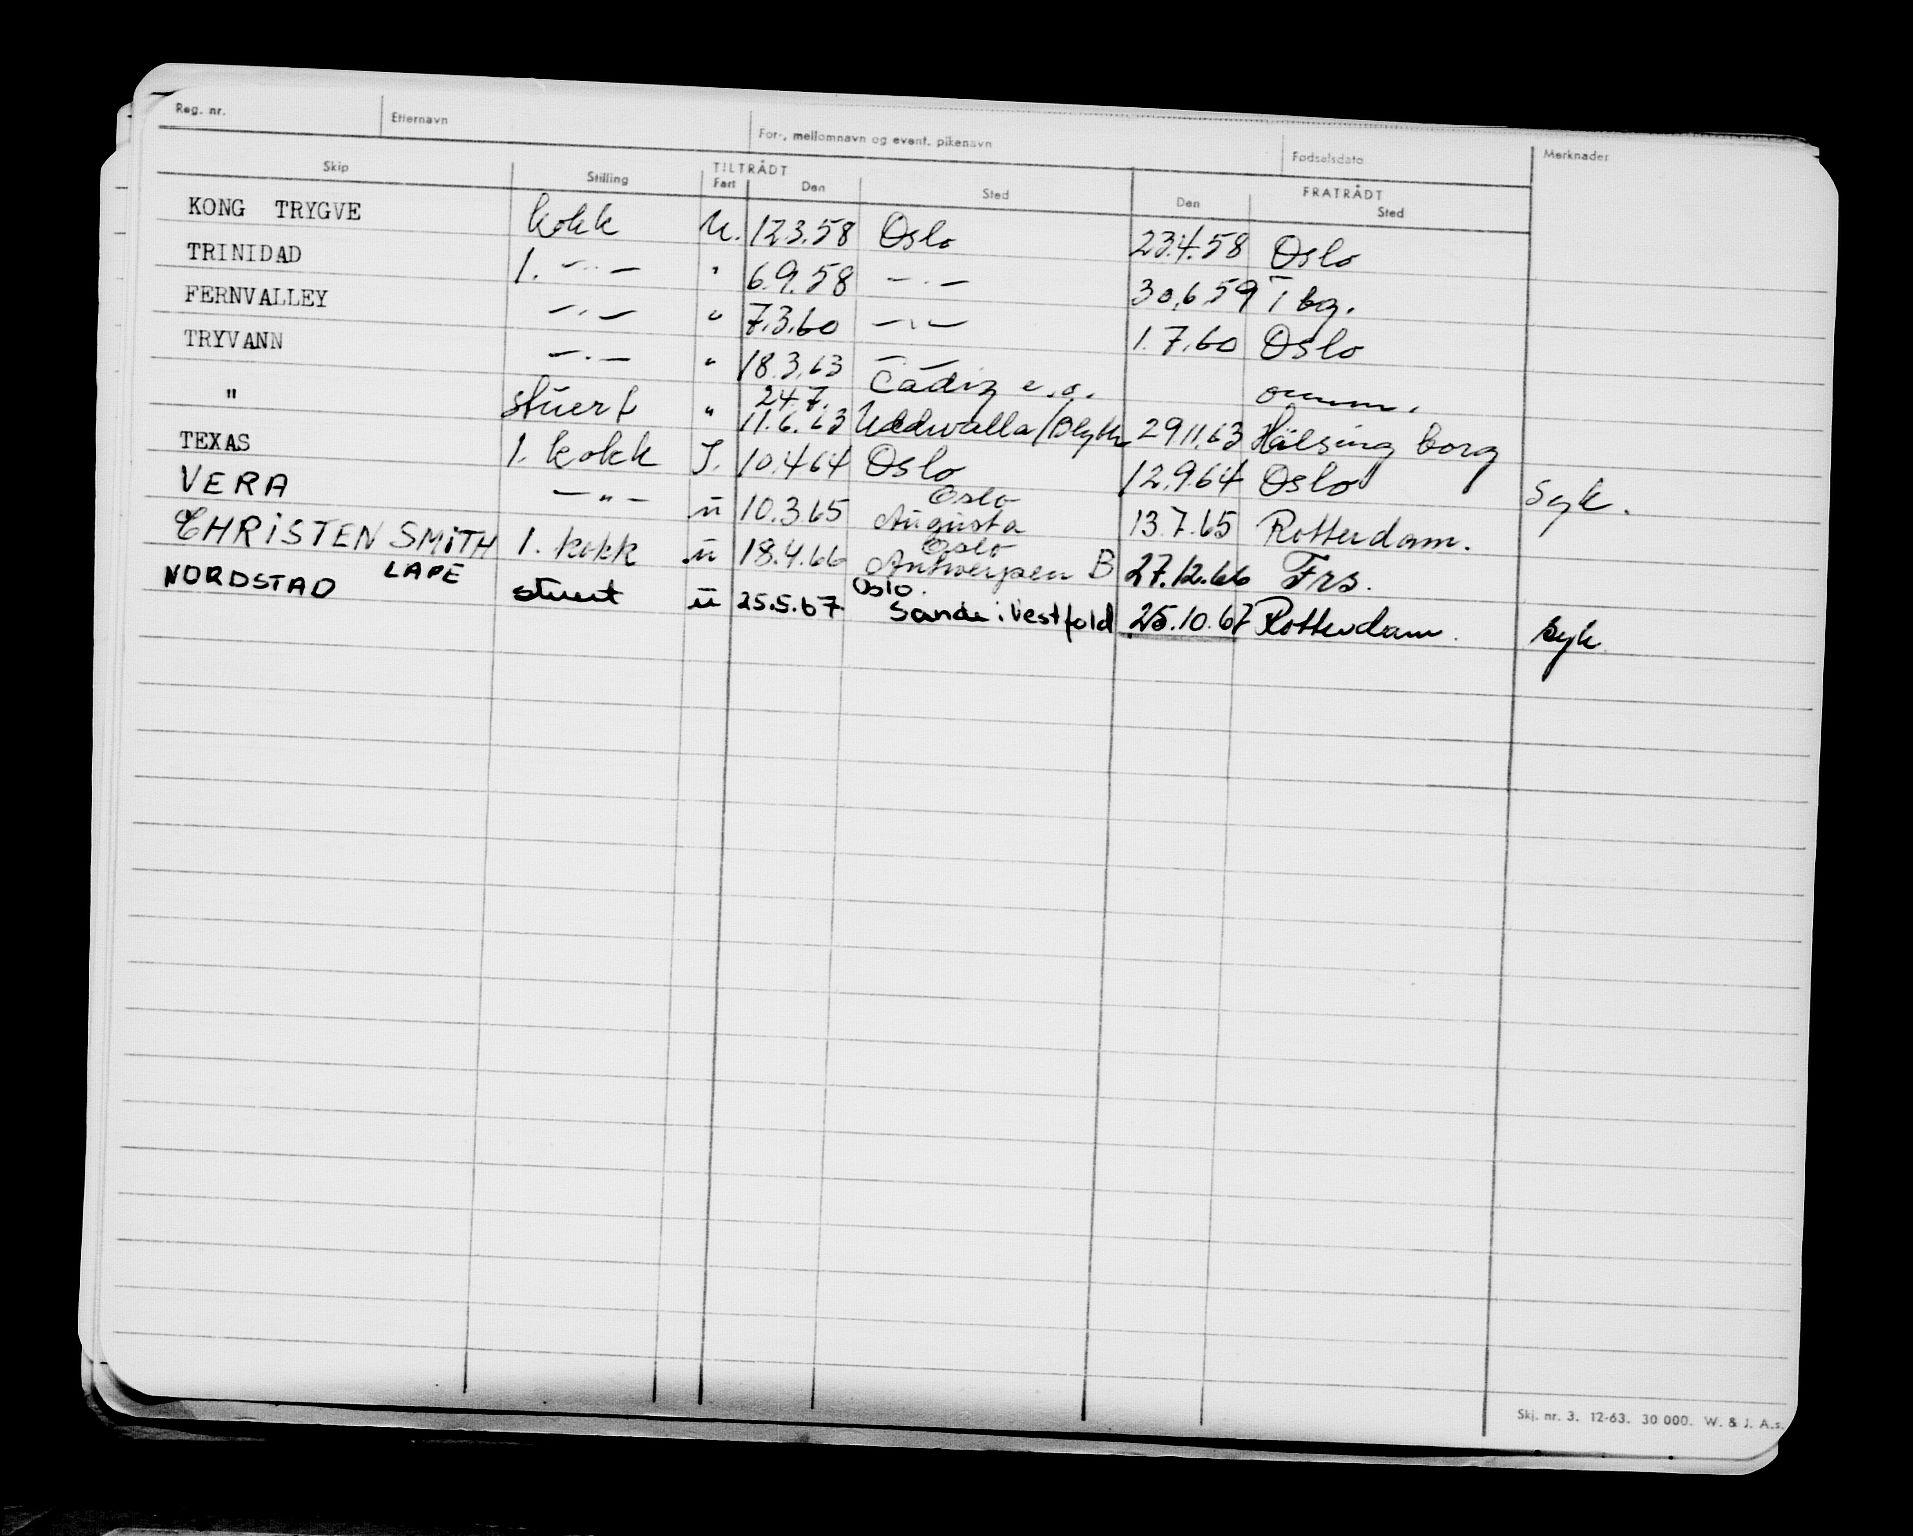 Reg. nr. Etternavn For-, mellomnavn og event. pikenavn Fødselsdato Merknader
TILTRÅDT FRATRÅDT
Skip Stilling Fart Den Sted Den Sted
KONG TRYGVE kokk U. 12.3.58 Oslo 23.4.58 Oslo
TRINIDAD 1. —"— " 6.9.58 —"— 30.6.59 Tbg.
FERNVALLEY —"— " 7.3.60 —"— 1.7.60 Oslo
TRYVANN —"— " 18.3.63 Cadiz e.o. omm.
24.7.
" stuert " 11.6.63 Uddevalla/Blyth 29.11.63 Hälsingborg
TEXAS 1. kokk I. 10.4.64 Oslo 12.9.64 Oslo Syk.
Oslo
VERA —"— u 10.3.65 Augusta 13.7.65 Rotterdam.
Oslo
CHRISTEN SMITH 1. kokk u 18.4.66 Antwerpen B 27.12.66 Frs.
LAPE Oslo.
NORDSTAD stuert u 25.5.67 Sande i Vestfold 25.10.67 Rotterdam. syk
Skj. nr. 3. 12-63. 30 000. W. & J. A.s.